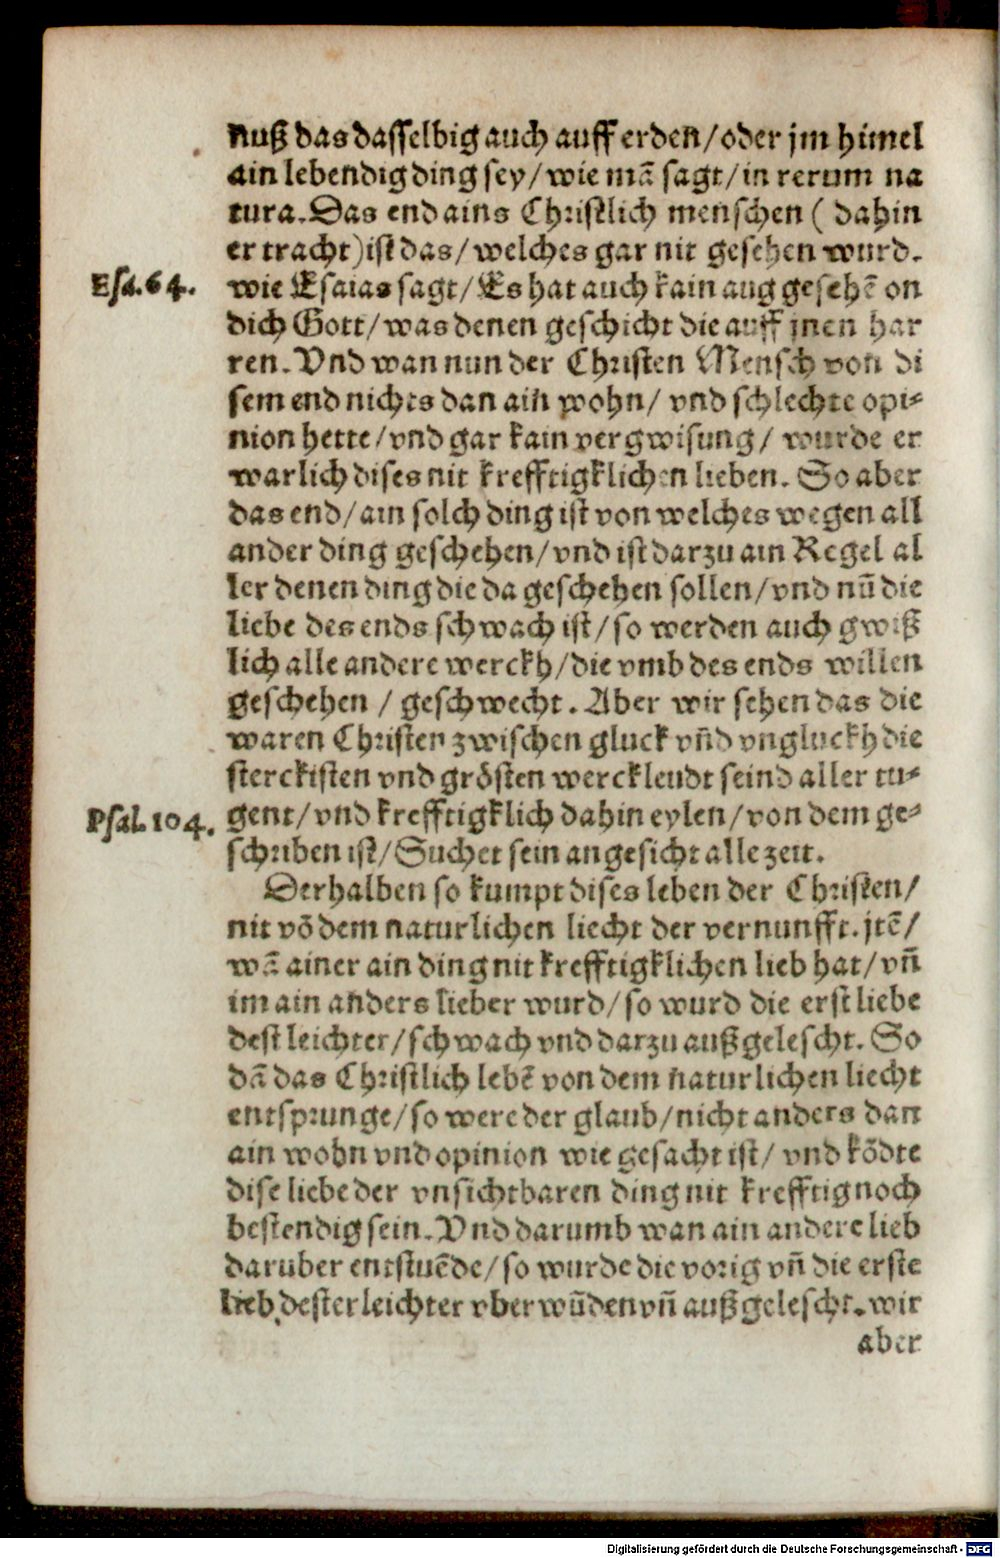 nuß das dasselbig auch auff erden/oder jm hu̅mel
ain lebendig ding sey/wie mā sagt/in rerum na
tura. Das end ains Christlich menschen ( dahin
er tracht) ist das/welches gar nit gesehen wurd.
Esa. 64.
wie Esaias sagt/Es hat auch kain aug gesehē on
dich Gott/was denen geschicht die auff jnen har
ren. Vnd wan nun der Christen Mensch von di
sem end nichts dan ain wohn/ vnd schlechte opi⸗
nion hette/vnd gar kain vergwisung/ wurde er
warlich dises nit krefftigklichen lieben. So aber
das end/ain solch ding ist von welches wegen all
ander ding geschehen/vnd ist darzu ain Regel al
ler denen ding die da geschehen sollen/vnd nū die
liebe des ends schwach ist/so werden auch gwiß
lich alle andere werckh/die vmb des ends willen
geschehen / geschwecht. Aber wir sehen das die
waren Christen zwischen gluck vn̄d vngluckh die
sterckisten vnd grösten werckleudt seind aller tu⸗
Psal. 104.
gent/vnd krefftigklich dahin eylen/von dem ge⸗
schriben ist/Suchet sein angesicht alle zeit.
Derhalben so kumpt dises leben der Christen/
nit vō dem naturlichen liecht der vernunfft. jtē/
wā ainer ain ding nit krefftigklichen lieb hat/vn̄
im ain anders lieber wurd/so wurd die erst liebe
dest leichter/schwach vnd darzu außgelescht. So
dā das Christlich lebē von dem naturlichen liecht
entsprunge/so were der glaub/nicht anders dan
ain wohn vnd opinion wie gesacht ist/ vnd kōdte
dise liebe der vnsichtbaren ding nit krefftig noch
bestendig sein. Vnd darumb wan ain andere lieb
daruber entstuēde/so wurde die vorig vn̄ die erste
lieb, dester leichter vberwūden vn̄ außgelescht. wir
aber
Digitalisierung gefördert durch die Deutsche Forschungsgemeinschaft - DFG